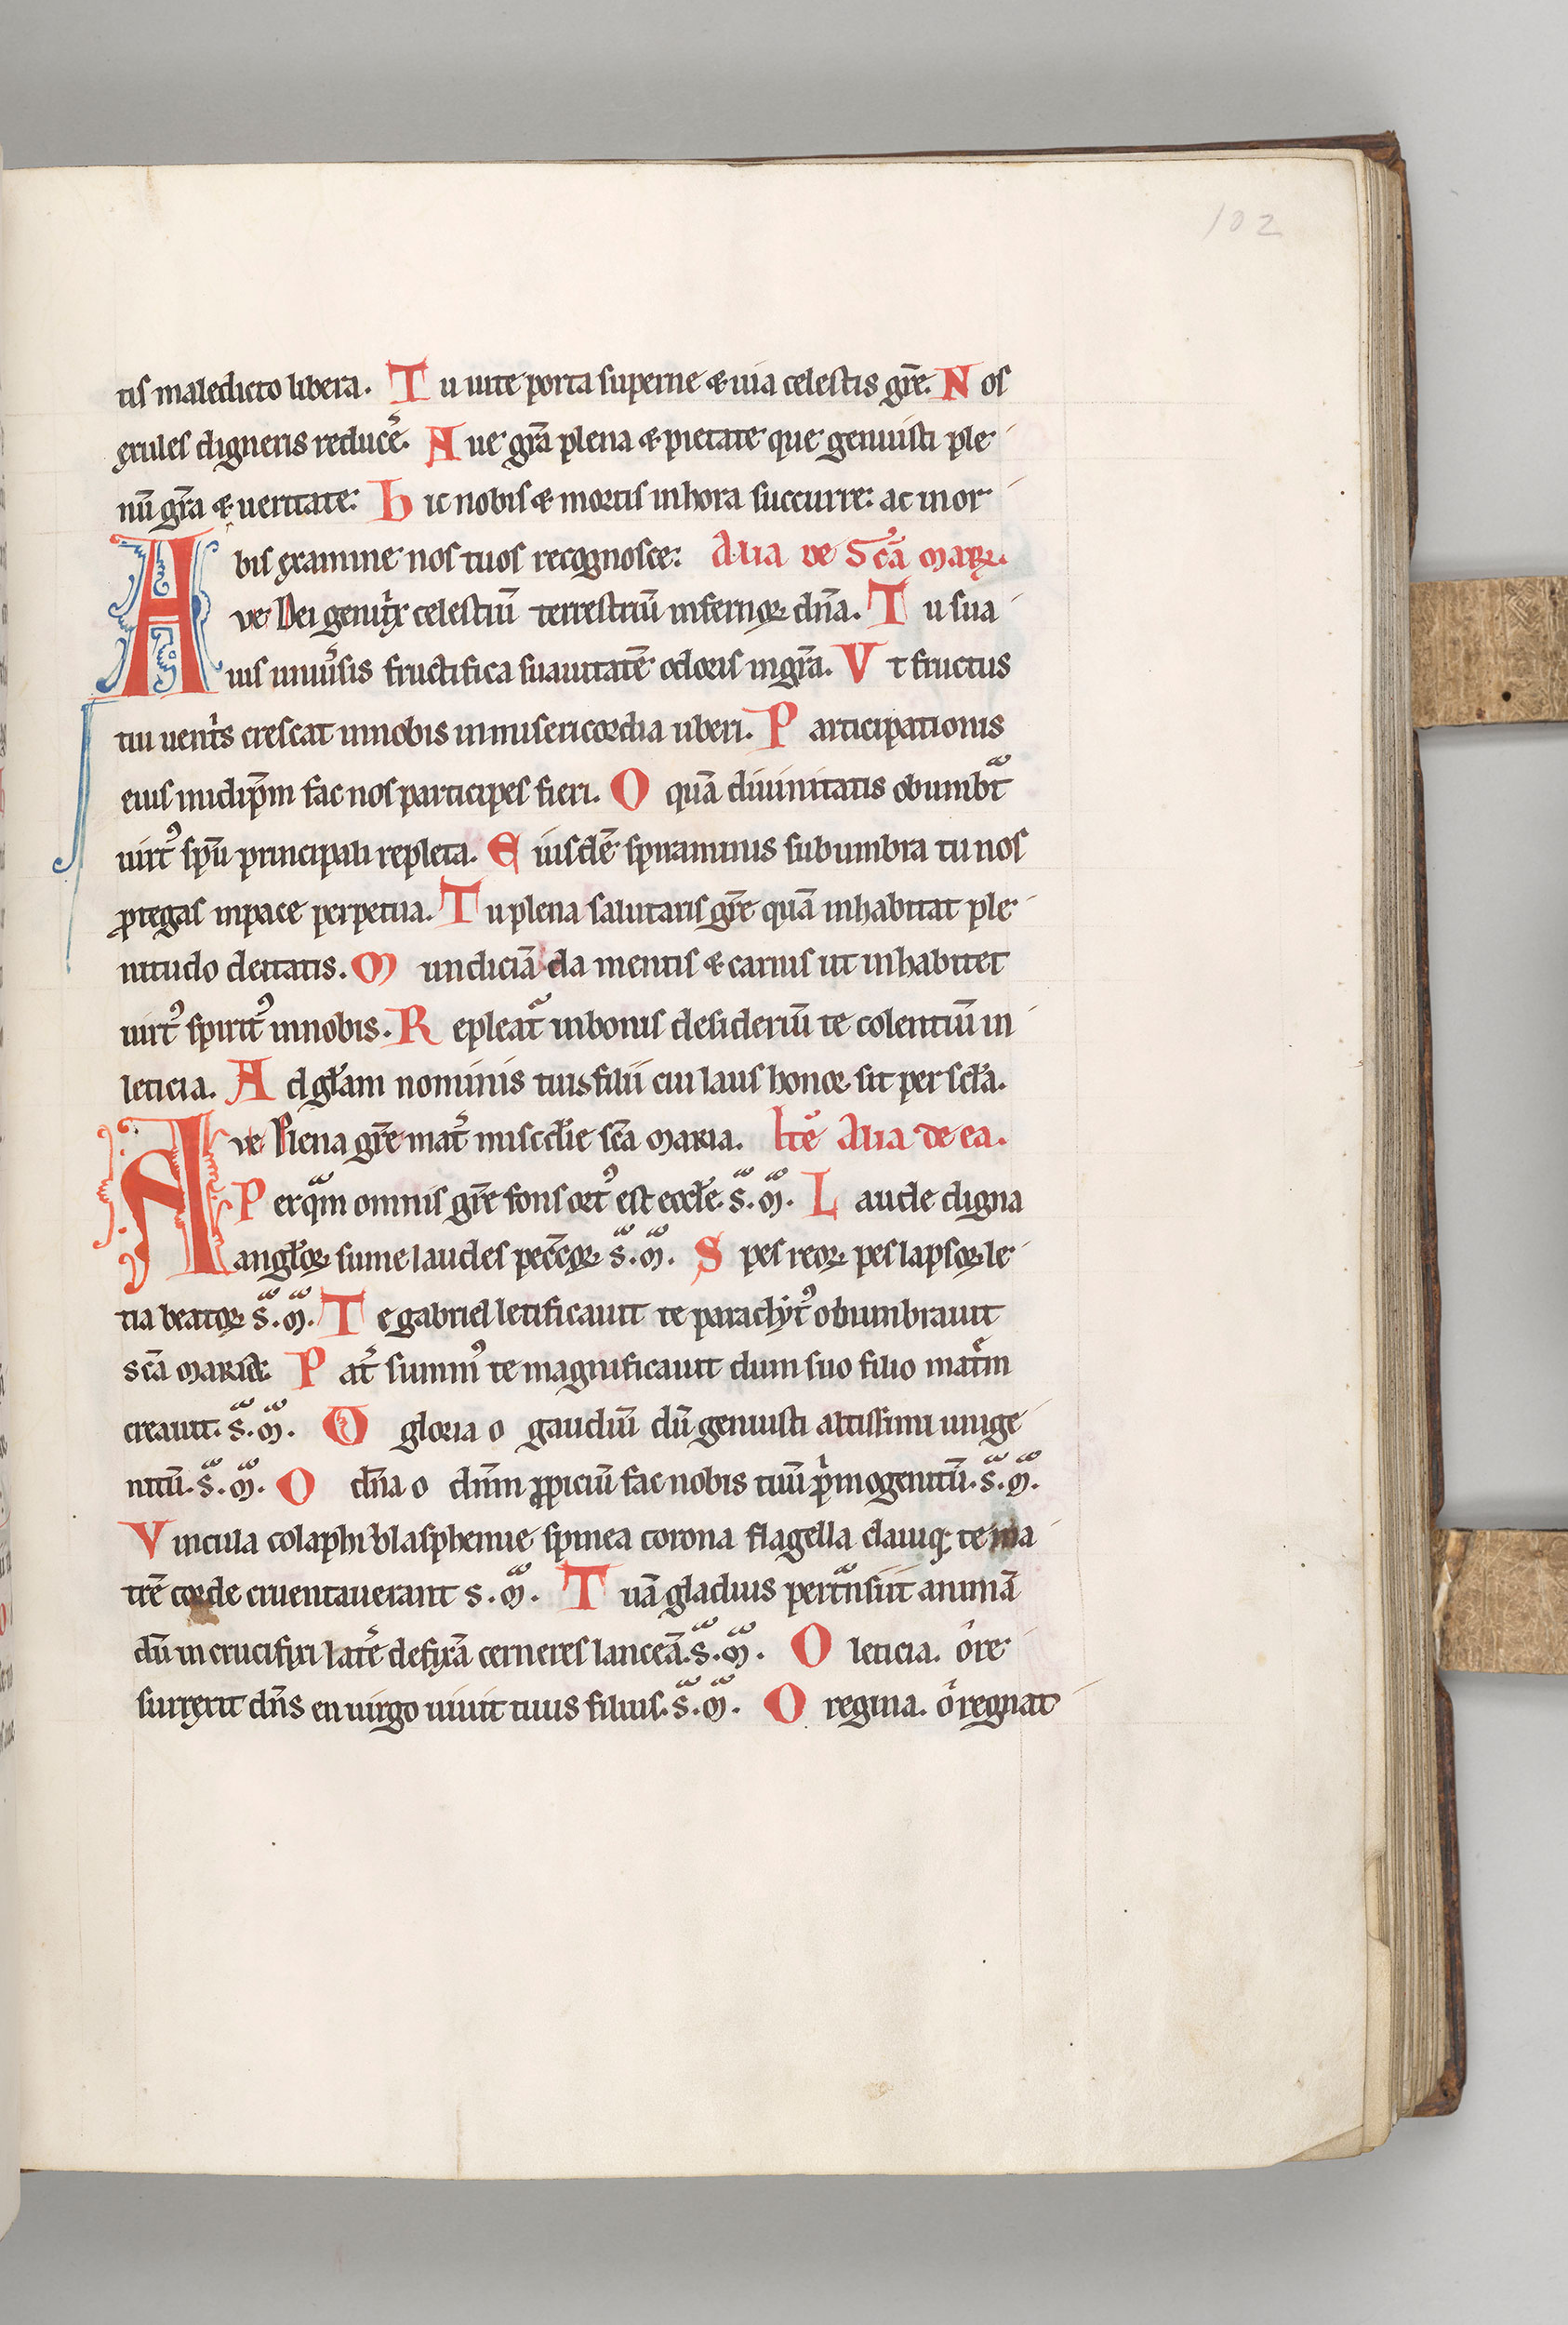 102
tis maledicto libera. Tu uite porta superne & uia celestis grē. Nos
exules digneris reducē. Aue grā plena & pietate que genuisti ple
nū grā & ueritate. hic nobis & mortis in hora succurre: ac in or
bis examine nos tuos recognosce: Alia de Scā Mar̄.
Aue Dei genitͥx celestiū terrestriū infernoꝝ dn̄a. Tu sua
uis uniu͛sis fructifica suauitatē odoris in grā. Vt fructus
tui uentͥs crescat in nobis in misericordia uberi. Participationis
eius indip̄m fac nos participes fieri. O quā diuinitatis obumbᷓt
uirtꝰ spū principali repleta. Eiusdē spiraminis sub umbra tu nos
ꝓtegas in pace perpetua. Tu plena salutaris grē quā inhabitat ple
nitudo deitatis. Mundiciā da mentis & carnis ut inhabitet
uirtꝰ spiritꝰ in nobis. Repleat᷑ in bonis desideriū te colentiū in
leticia. Ad gl̄am nominis tui filii cui laus honor sit per scl̄a.
Aue Plena grē mat͛ miscd̄ie scā maria. Itē Alia de ea.
Per qᷓm omnis grē fons ortꝰ est eccl̄e. sᷓ. mᷓ. Laude digna
angl̄oꝝ sume laudes pecc̄oꝝ sᷓ. mᷓ. Spes reoꝝ pes lapsoꝝ le
tia beatoꝝ sᷓ. mᷓ. Te gabriel letificauit te paraclytꝰ obumbrauit
scā maria. Pat͛ summꝰ te magnificauit dum suo filio mat͛m
creauit. sᷓ. mᷓ. O gloria o gaudiū dū genuisti altissimi unige
nitū. sᷓ. mᷓ. O dn̄a o dn̄m ꝓpiciū fac nobis tuū pͥmogenitū. sᷓ. mᷓ.
Vincula colaphi blasphemie spinea corona flagella clauiq; te ma
trē corde cruentauerant s. mᷓ. Tuā gladius pertᷓnsiit animā
dū in crucifixi lat͛e defixā cerneres lanceā. sᷓ. mᷓ. O leticia. o re
surrexit dn̄s en uirgo uiuit tuus filius. sᷓ. mᷓ. O regina. o regnat